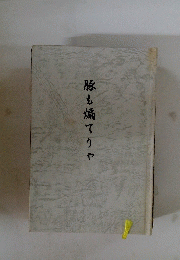 豚も煽てりゃ